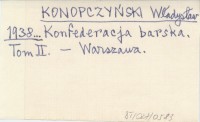 KONOPCZYŃSKI Władysław
1938... Konfederacja barska.
Tom II. — Warszawa.